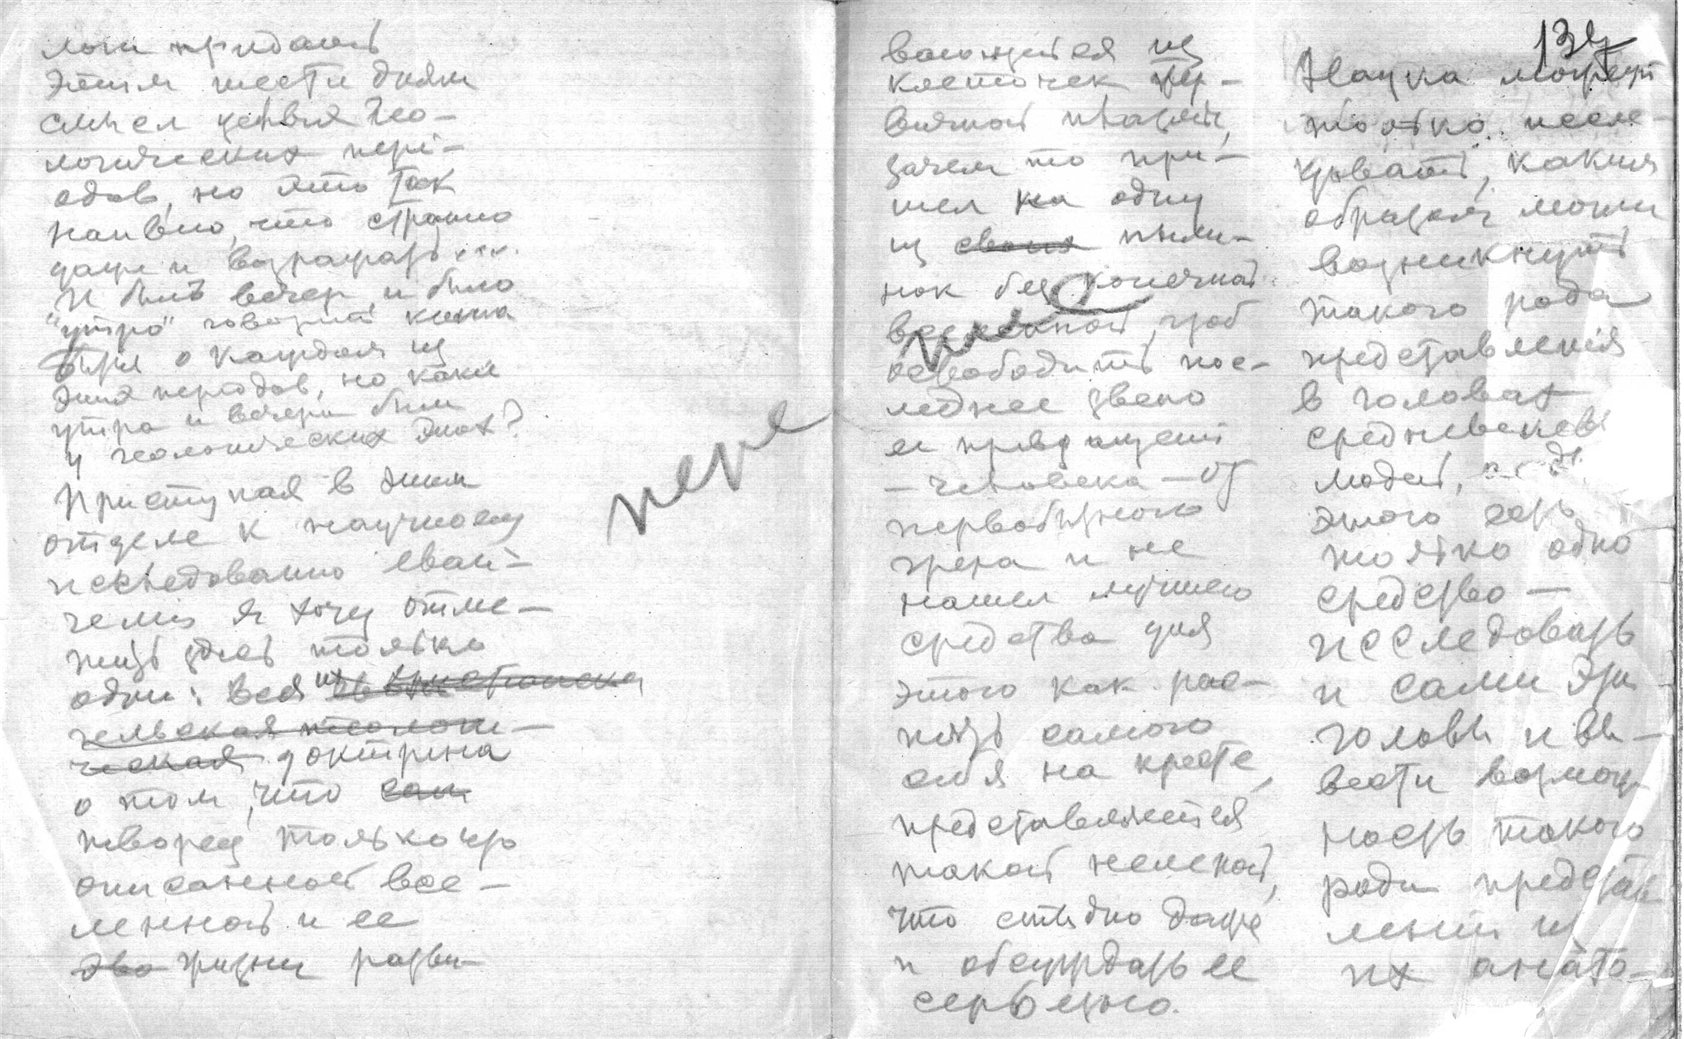 лои придать
этим шести дням
смысл целых гео-
логических пері-
одов, но это так
наивно, что странно
даже и возражать....
И былъ вечер, и было
"утро" говорит книга
Бытия о каждом из
этих периодов, но какие
утра и вечера были
у геологических эпох?
Приступая в этом
отделе к научному
исследованию еван-
гелий я хочу отме-
тить здесь только
одно: вся их христианска
тельская теологи-
ческая доктрина
о том, что сам
творец только что
описанной все-
ленной и ее
эво жизни разви-
вающейся из
клеточек пер-
вичной плазмы,
зачем то при-
шел на одну
из своих пыли-
нок бесконечной
вселенной, чтоб
освободить пос-
леднее звено
ее превращений
— человека — от
первобытного
греха и не
нашел лучшего
средства для
этого как рас-
пять самого
себя на кресте,
представляется
такой нелепой,
что стыдно даже
и обсуждать ее
серьезно.
пере
139
Наука может
только иссле-
довать, каким
образом могли
возникнуть
такого рода
представленія
в головах
средневековых
людей,
этого есть
только одно
средство —
исследовать
и сами эти
головы и вы-
вести возмож-
ность такого
рода представ
лений из
их анато-